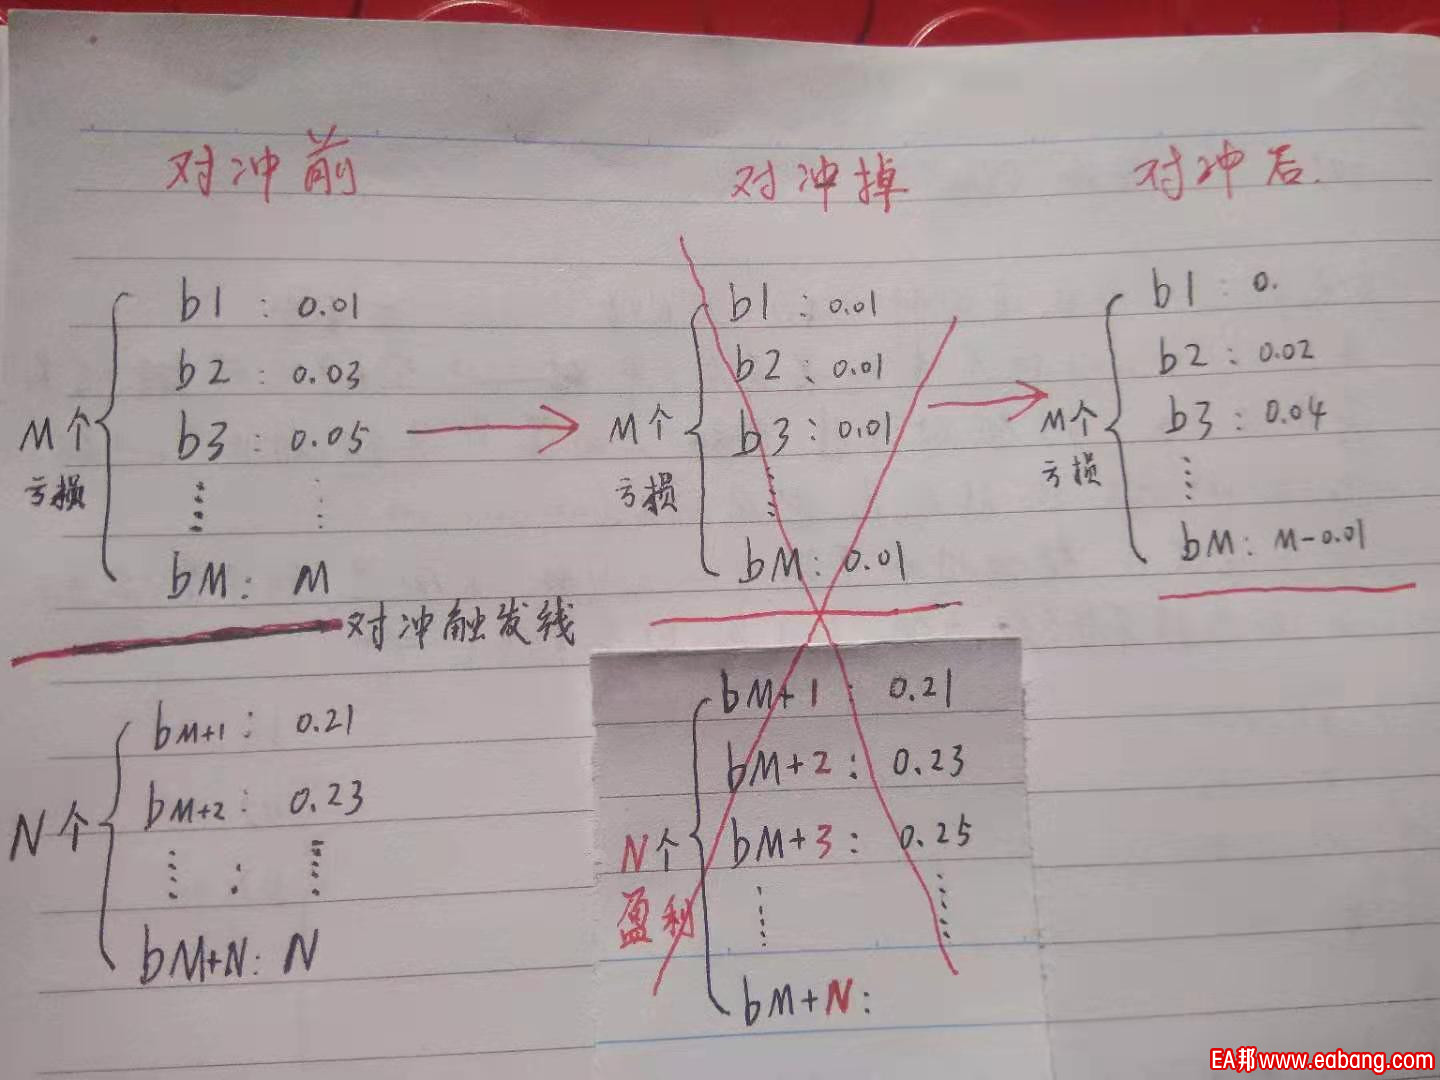 对冲前
b1 : 0.01
b2 : 0.03
M个 b3 : 0.05
亏损
bM : M
对冲触发线
bM+1 : 0.21
bM+2 : 0.23
N个
bM+N : N
对冲掉
b1 : 0.01
b2 : 0.01
M个 b3 : 0.01
亏损
bM : 0.01
bM+1 : 0.21
bM+2 : 0.23
N个 bM+3 : 0.25
盈利
bM+N :
对冲后.
b1 : 0.
b2 : 0.02
M个 b3 : 0.04
亏损
bM : M-0.01
EA邦 www.eabang.com